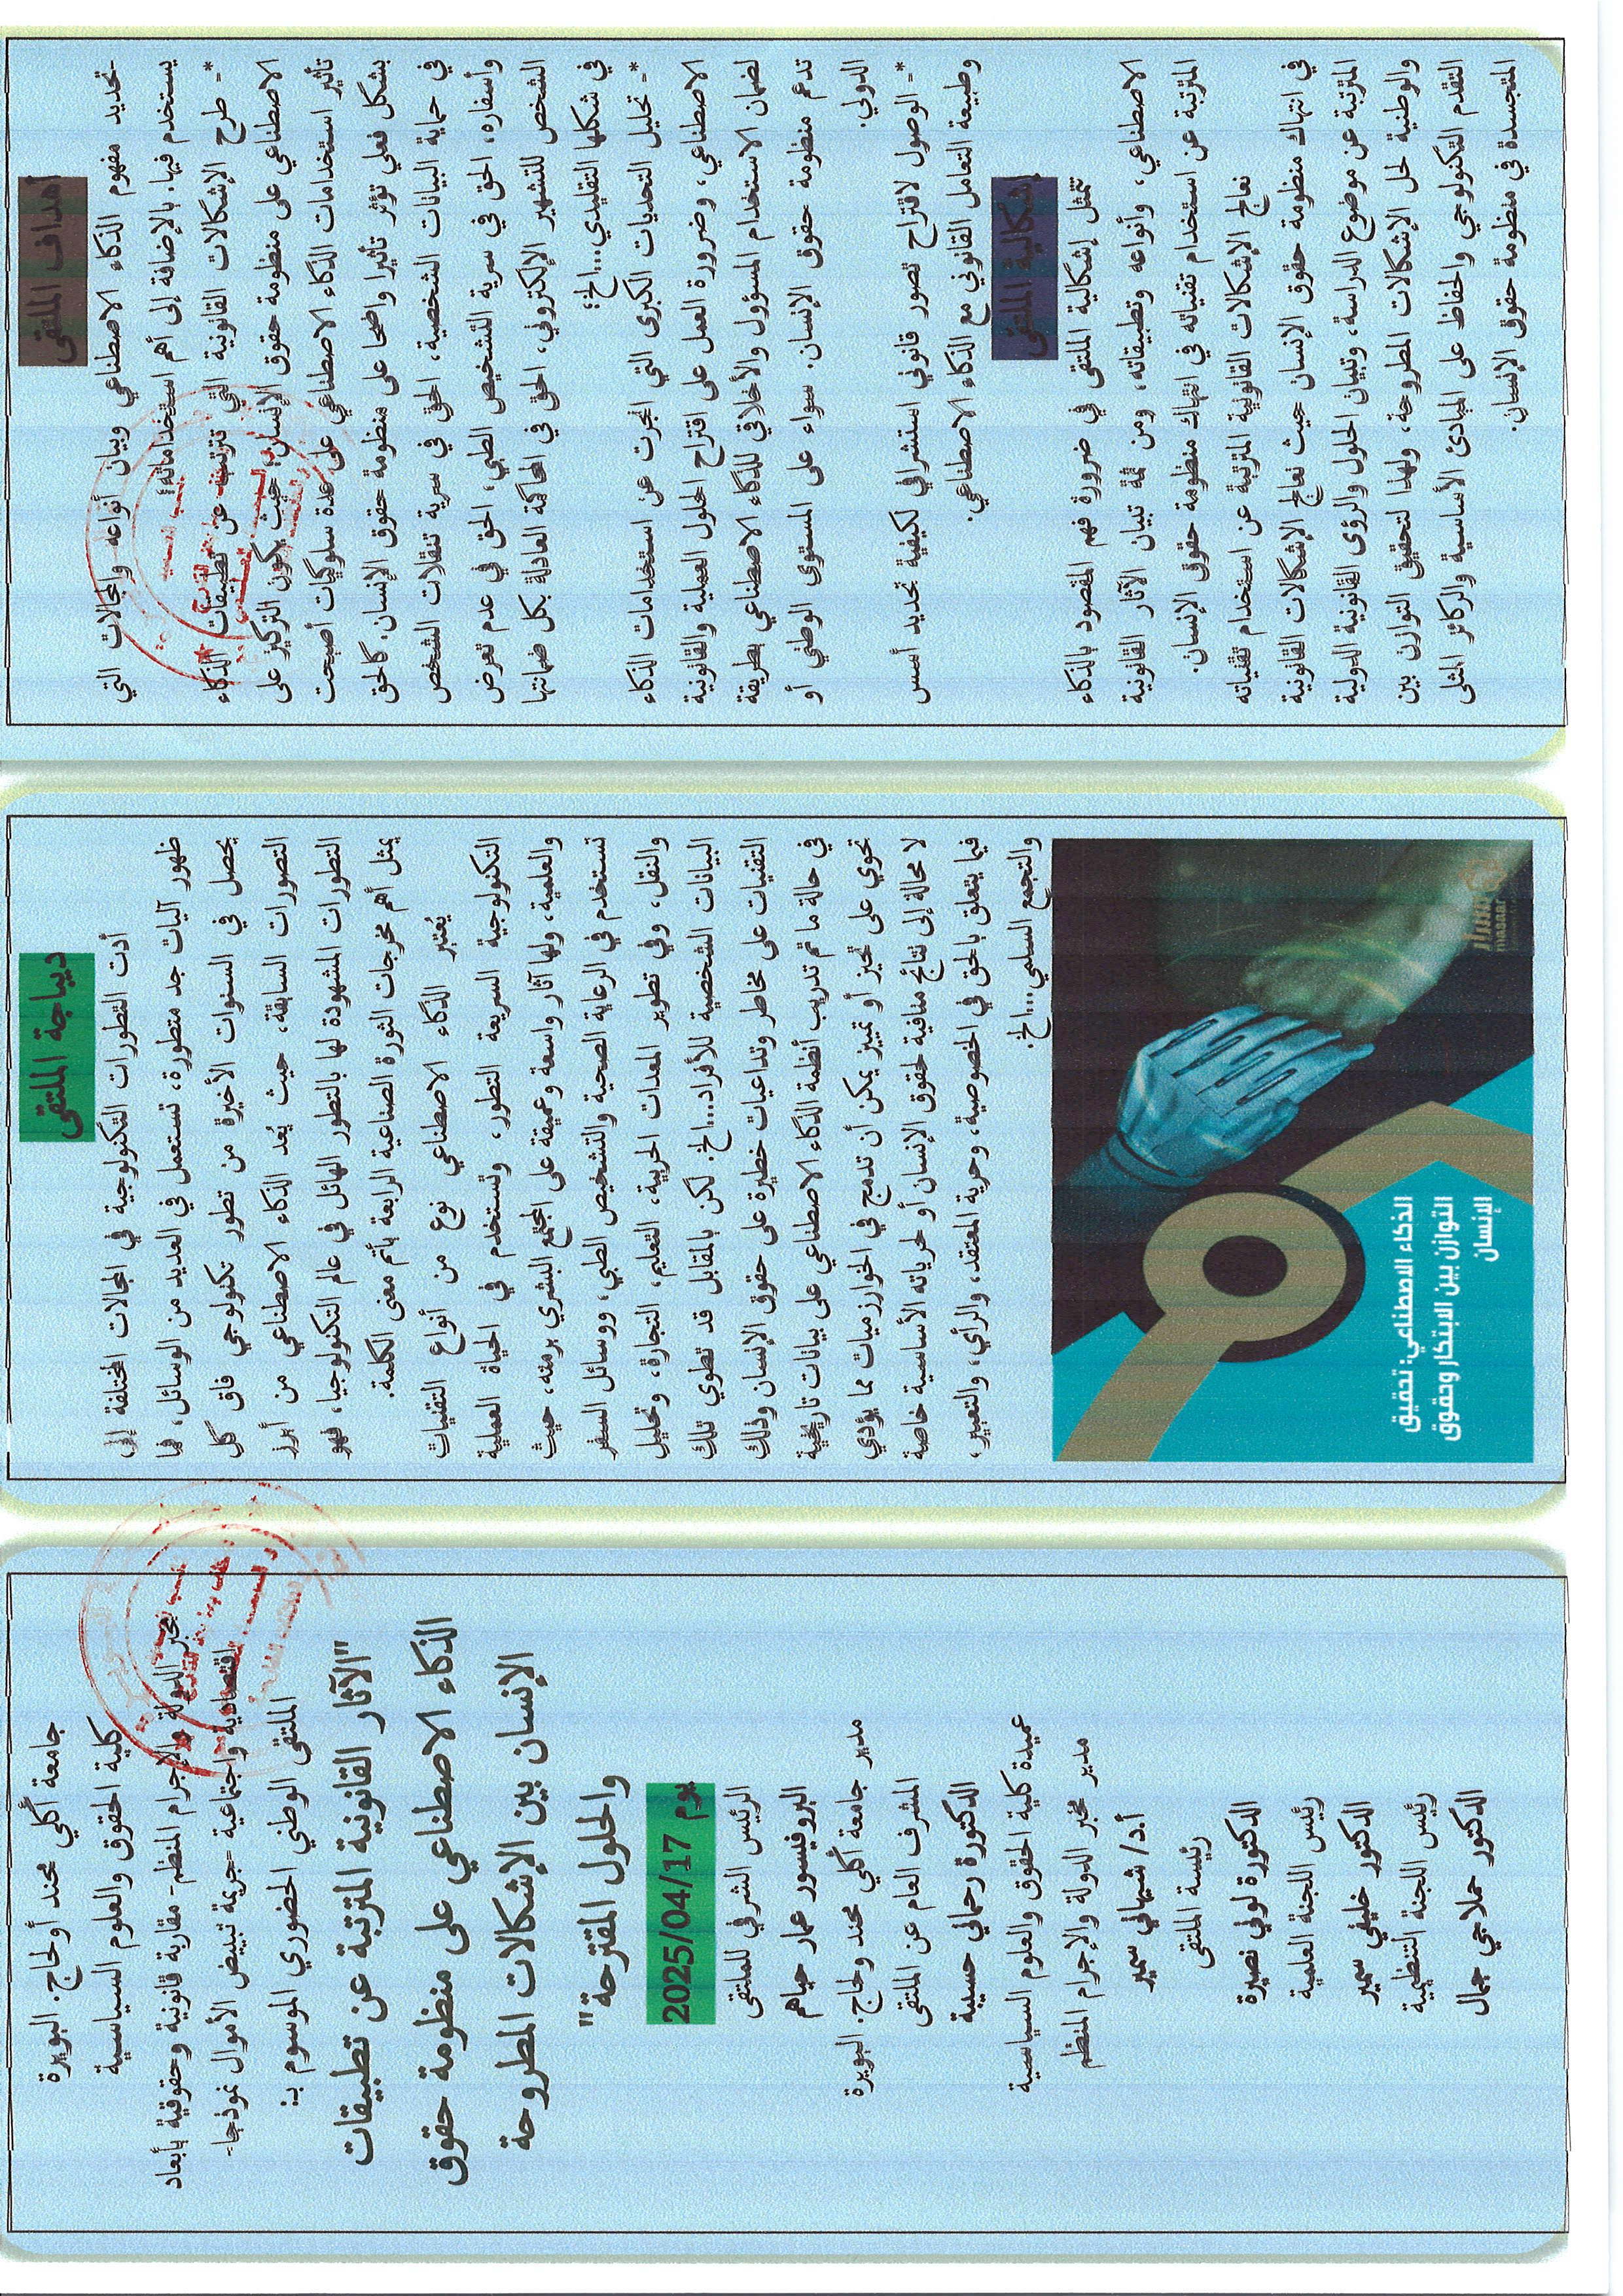 جامعة أكلي محند أولحاج. البويرة
كلية الحقوق والعلوم السياسية
مخبر الدولة والإجرام المنظم- مقاربة قانونية وحقوقية بأبعاد
اقتصادية واجتماعية -جريمة تبييض الأموال نموذجا-
الملتقى الوطني الحضوري الموسوم بـ:
"الآثار القانونية المترتبة عن تطبيقات
الذكاء الاصطناعي على منظومة حقوق
الإنسان بين الإشكالات المطروحة
والحلول المقترحة"
يوم 2025/04/17
الرئيس الشرفي للملتقى
البروفيسور عمار حياهم
مدير جامعة أكلي محند وحاج. البويرة
المشرف العام عن الملتقى
الدكتورة رحماني حسيبة
عميدة كلية الحقوق والعلوم السياسية
مدير مخبر الدولة والإجرام المنظم
أ.د/ شيهاني سمير
رئيسة الملتقى
الدكتورة لوني نصيرة
رئيس اللجنة العلمية
الدكتور خليفي سمير
رئيس اللجنة التنظيمية
الدكتور حملاجي جمال
ديباجة الملتقى
أدت التطورات التكنولوجية في المجالات المختلفة إلى
ظهور آليات جد متطورة، تستعمل في العديد من الوسائل، فما
يحصل في السنوات الأخيرة من تطور تكنولوجي فاق كل
التصورات السابقة، حيث يُعد الذكاء الاصطناعي من أبرز
التطورات المشهودة لها بالتطور الهائل في عالم التكنولوجيا، فهو
يمثل أهم مخرجات الثورة الصناعية الرابعة بأتم معنى الكلمة.
يُعتبر الذكاء الاصطناعي نوع من أنواع التقنيات
التكنولوجية السريعة التطور، وتستخدم في الحياة العملية
والعلمية، ولها آثار واسعة وعميقة على المجتمع البشري برمته، حيث
تستخدم في الرعاية الصحية والتشخيص الطبي، ووسائل السفر
والنقل، وفي تطوير المعدات الحربية، التعليم، التجارة، وتحليل
البيانات الشخصية للأفراد...الخ. لكن بالمقابل قد تطوي تلك
التقنيات على مخاطر وتداعيات خطيرة على حقوق الإنسان وذلك
في حالة ما تم تدريب أنظمة الذكاء الاصطناعي على بيانات تاريخية
تحوي على تحيز أو تمييز يمكن أن تدمج في الخوارزميات مما يؤدي
لا محالة إلى نتائج منافية لحقوق الإنسان أو لحرياته الأساسية خاصة
فيما يتعلق بالحق في الخصوصية، وحرية المعتقد، والرأي، والتعبير،
والتجمع السلمي...الخ.
الذكاء الاصطناعي: تحقيق
التوازن بين الابتكار وحقوق
الإنسان
masaar
أهداف الملتقى
-تحديد مفهوم الذكاء الاصطناعي وبيان أنواعه والمجالات التي
يستخدم فيها. بالإضافة إلى أهم استخداماته؛
*- طرح الإشكالات القانونية التي تترتب عن تطبيقات الذكاء
الاصطناعي على منظومة حقوق الإنسان، حيث يكون التركيز على
تأثير استخدامات الذكاء الاصطناعي على عدة سلوكيات أصبحت
بشكل فعلي تؤثر تأثيرا واضحا على منظومة حقوق الإنسان. كالحق
في حماية البيانات الشخصية، الحق في سرية تنقلات الشخص
وأسفاره، الحق في سرية التشخيص الطبي، الحق في عدم تعرض
الشخص للتشهير الإلكتروني، الحق في المحاكمة العادلة بكل ضماناتها
في شكلها التقليدي...الخ؛
*- تحليل التحديات الكبرى التي انجرت عن استخدامات الذكاء
الاصطناعي، وضرورة العمل على اقتراح الحلول العملية والقانونية
لضمان الاستخدام المسؤول والأخلاقي للذكاء الاصطناعي بطريقة
تدعم منظومة حقوق الإنسان. سواء على المستوى الوطني أو
الدولي.
*- الوصول لاقتراح تصور قانوني استشرافي لكيفية تحديد أسس
وطبيعة التعامل القانوني مع الذكاء الاصطناعي.
إشكالية الملتقى
تتمثل إشكالية الملتقى في ضرورة فهم المقصود بالذكاء
الاصطناعي، وأنواعه وتطبيقاته، ومن ثمة تبيان الآثار القانونية
المترتبة عن استخدام تقنياته في انتهاك منظومة حقوق الإنسان.
نعالج الإشكالات القانونية المترتبة عن استخدام تقنياته
في انتهاك منظومة حقوق الإنسان حيث نعالج الإشكالات القانونية
المترتبة عن موضوع الدراسة، وتبيان الحلول والرؤى القانونية الدولية
والوطنية لحل الإشكالات المطروحة، ولهذا لتحقيق التوازن بين
التقدم التكنولوجي والحفاظ على المبادئ الأساسية والركائز المثلى
المتجسدة في منظومة حقوق الإنسان.